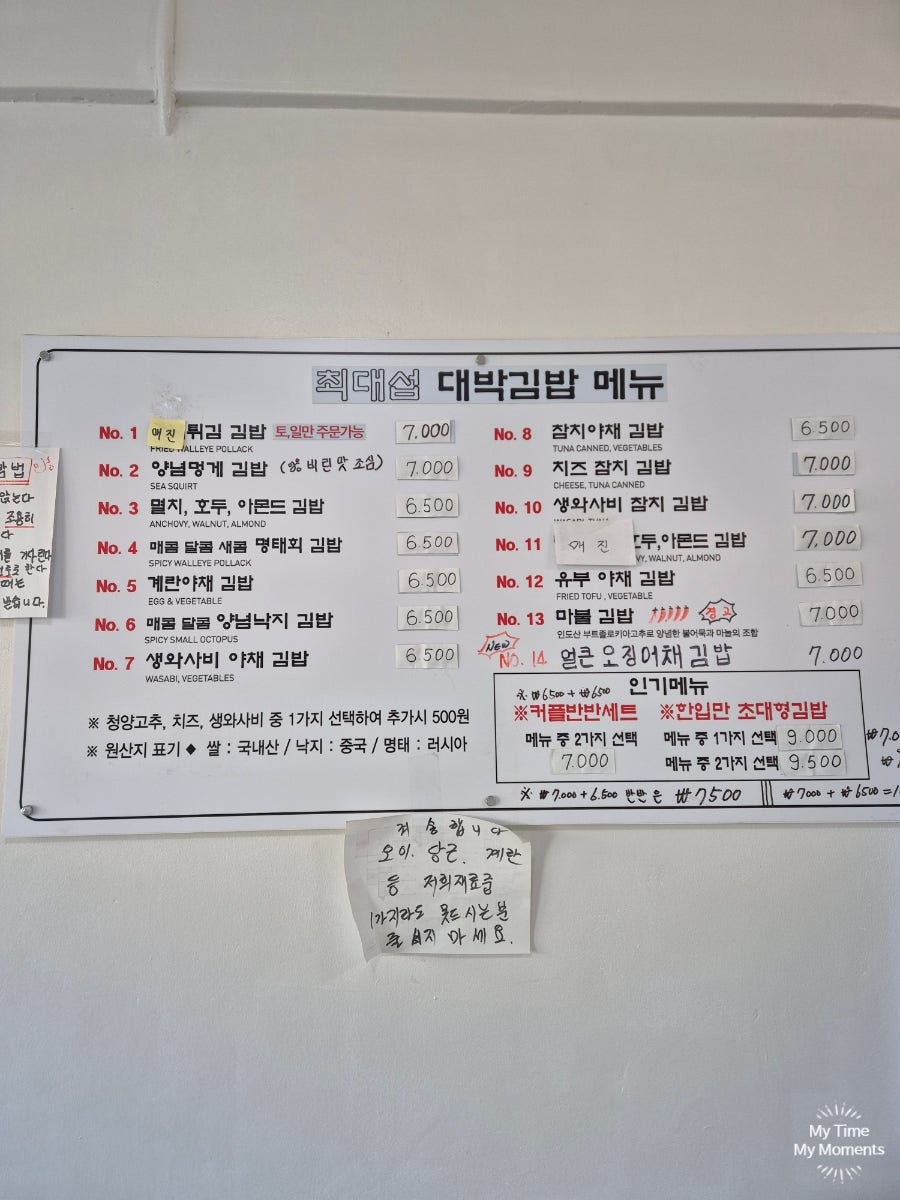 최대섭 대박김밥 메뉴
No. 1 매진 튀김 김밥 토,일만 주문가능 7.000
FRIED WALLEYE POLLACK
No. 2 양념멍게 김밥 비린 맛 조심) 7.000
SEA SQUIRT
No. 3 멸치, 호두, 아몬드 김밥 6.500
ANCHOVY, WALNUT, ALMOND
No. 4 매콤 달콤 새콤 명태회 김밥 6.500
SPICY WALLEYE POLLACK
No. 5 계란야채 김밥 6.500
EGG & VEGETABLE
No. 6 매콤 달콤 양념낙지 김밥 6.500
SPICY SMALL OCTOPUS
No. 7 생와사비 야채 김밥 6.500
WASABI, VEGETABLES
※ 청양고추, 치즈, 생와사비 중 1가지 선택하여 추가시 500원
※ 원산지 표기 ◆ 쌀 : 국내산 / 낙지 : 중국 / 명태 : 러시아
No. 8 참치야채 김밥 6.500
TUNA CANNED, VEGETABLES
No. 9 치즈 참치 김밥 7.000
CHEESE, TUNA CANNED
No. 10 생와사비 참치 김밥 7.000
WASABI, TUNA
No. 11 매진 호두,아몬드 김밥 7.000
WALNUT, ALMOND
No. 12 유부 야채 김밥 6.500
FRIED TOFU , VEGETABLE
No. 13 마불 김밥 경고 7.000
인도산 부트졸로키아고추로 양념한 불어묵과 마늘의 조합
NEW NO. 14 얼큰 오징어채 김밥 7.000
인기메뉴
※ ₩6500 + ₩6500
※커플반반세트 ※한입만 초대형김밥
메뉴 중 2가지 선택 메뉴 중 1가지 선택 9.000
7.000 메뉴 중 2가지 선택 9.500
※ ₩7.000 + 6.500 반반은 ₩7500 ₩7000 + ₩6500 =
조용히
한다
받습니다.
죄송합니다
오이. 당근. 계란
등 저희재료중
1가지라도 못드시는분
줄 서지 마세요.
My Time
My Moments